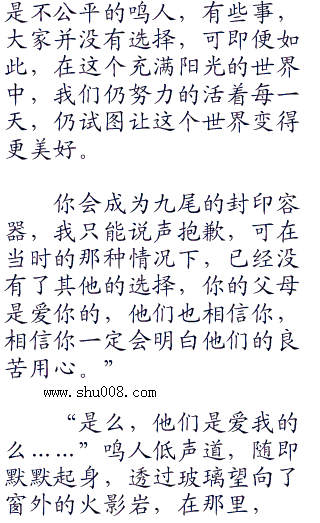 是不公平的鸣人，有些事，
大家并没有选择，可即便如
此，在这个充满阳光的世界
中，我们仍努力的活着每一
天，仍试图让这个世界变得
更美好。
你会成为九尾的封印容
器，我只能说声抱歉，可在
当时的那种情况下，已经没
有了其他的选择，你的父母
是爱你的，他们也相信你，
相信你一定会明白他们的良
苦用心。”
www.shu008.com
“是么，他们是爱我的
么……”鸣人低声道，随即
默默起身，透过玻璃望向了
窗外的火影岩，在那里，